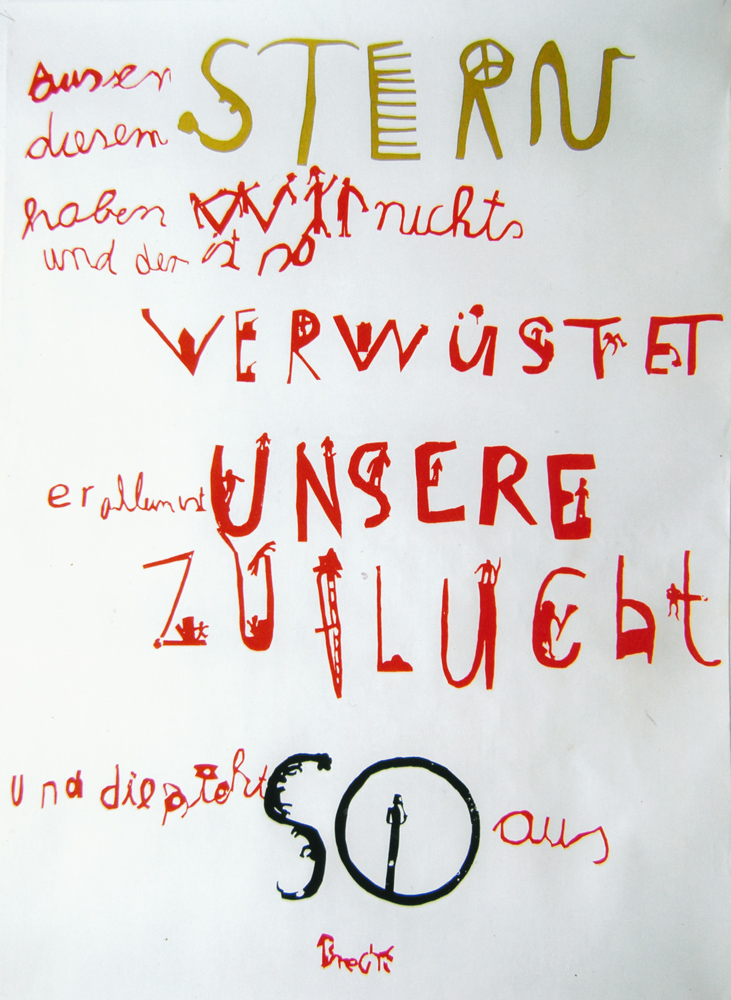 ausser
diesem STERN
haben wir nichts
und der ist so
VERWÜSTET
er allein ist UNSERE
ZUfLUCht
und die sieht SO aus
Brecht